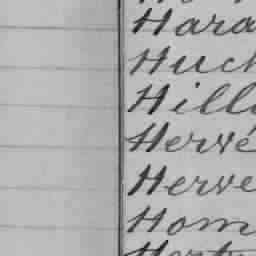 Hara
Huch
Hill
Hervé
Herve
Hom